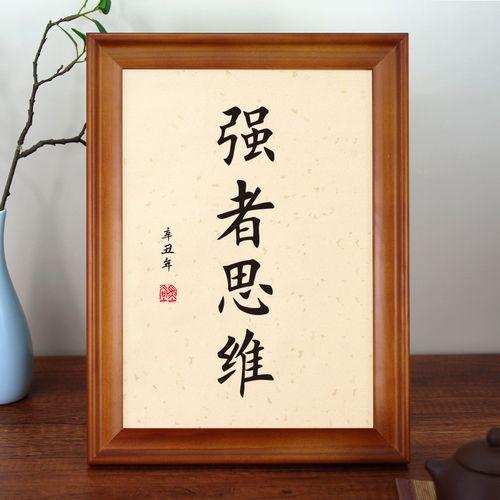 强者思维
辛丑年